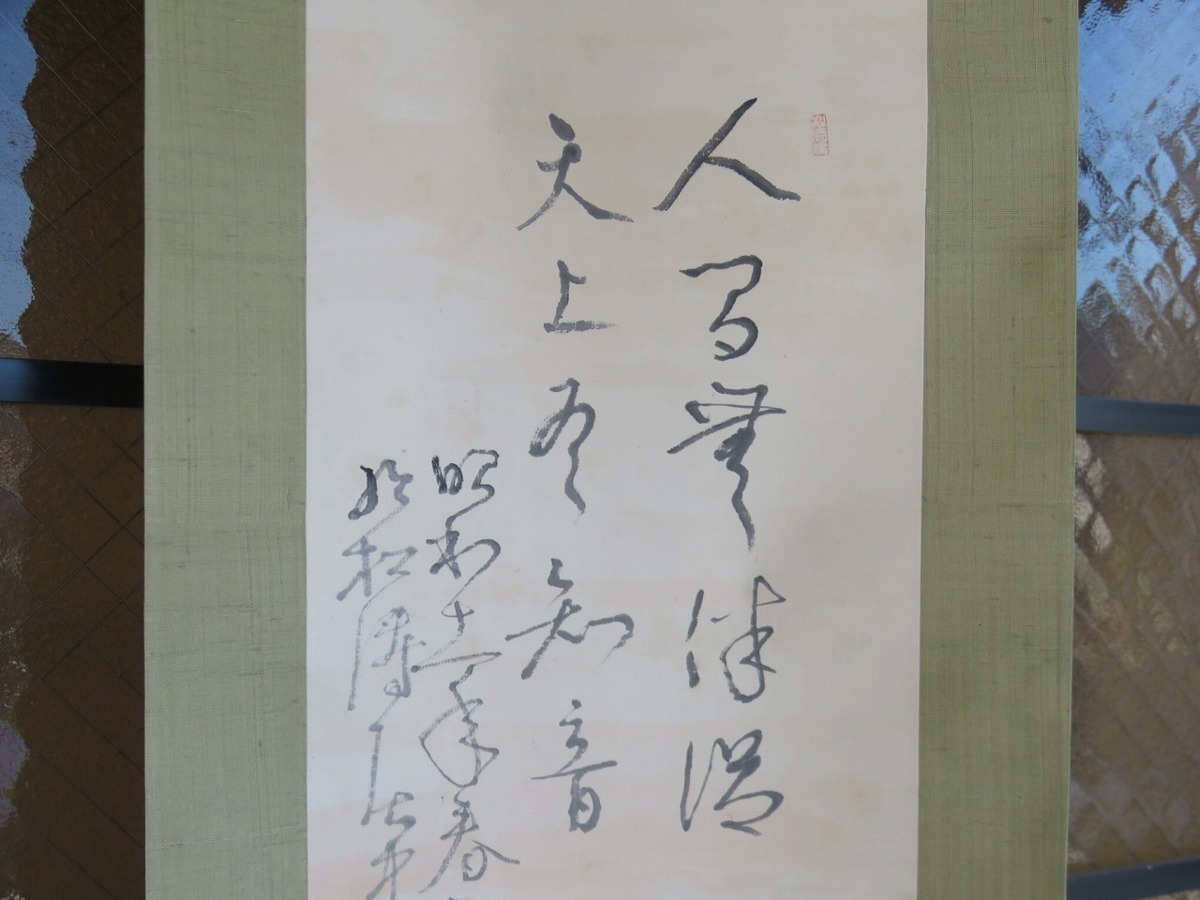 人間無伴侶
天上有知音
昭和十一年春
於松濤居